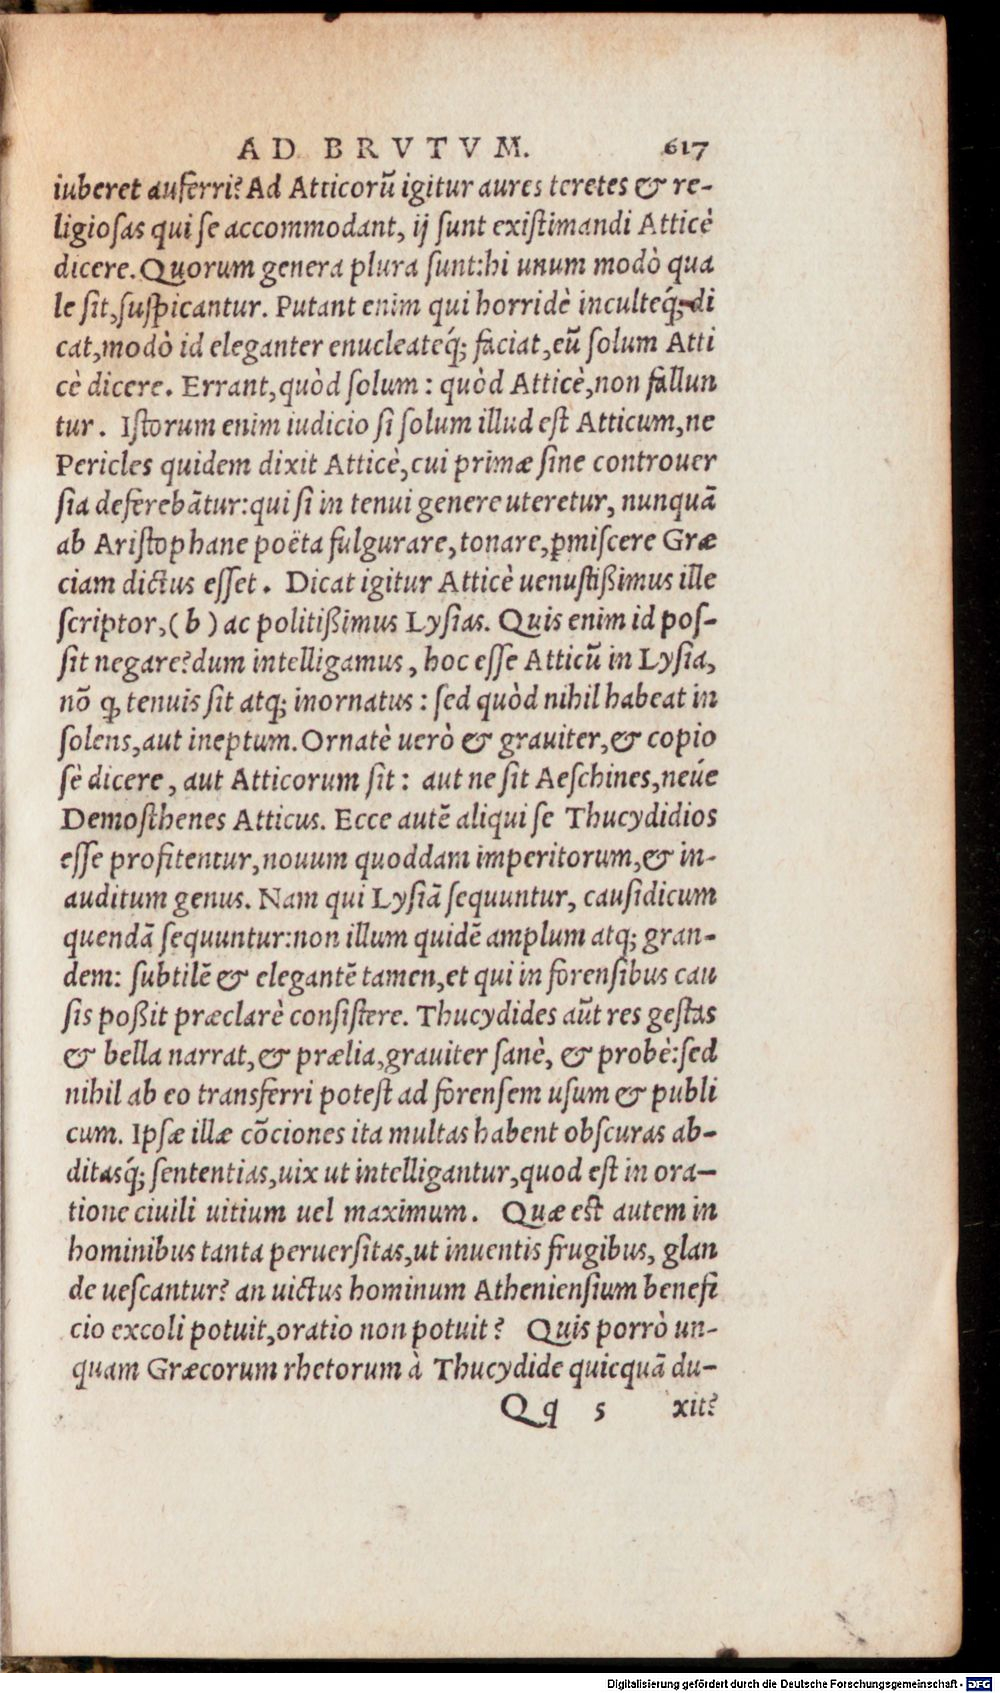 AD BRVTVM. 617
iuberet auferri? Ad Atticorũ igitur aures teretes & re-
ligiosas qui se accommodant, ij sunt existimandi Atticè
dicere. Quorum genera plura sunt: hi unum modò qua
le sit, suspicantur. Putant enim qui horridè inculteq́; di
cat, modò id eleganter enucleateq́; faciat, eũ solum Atti
cè dicere. Errant, quòd solum: quòd Atticè, non fallun
tur. Istorum enim iudicio si solum illud est Atticum, ne
Pericles quidem dixit Atticè, cui primæ sine controuer
sia deferebãtur: qui si in tenui genere uteretur, nunquã
ab Aristophane poëta fulgurare, tonare, ꝑmiscere Græ
ciam dictus esset. Dicat igitur Atticè uenustißimus ille
scriptor, (b) ac politißimus Lysias. Quis enim id pos-
sit negare? dum intelligamus, hoc esse Atticũ in Lysia,
nõ ꝙ tenuis sit atq; inornatus: sed quòd nihil habeat in
solens, aut ineptum. Ornatè uerò & grauiter, & copio
sè dicere, aut Atticorum sit: aut ne sit Aeschines, neúe
Demosthenes Atticus. Ecce autẽ aliqui se Thucydidios
esse profitentur, nouum quoddam imperitorum, & in-
auditum genus. Nam qui Lysiã sequuntur, causidicum
quendã sequuntur: non illum quidẽ amplum atq; gran-
dem: subtilẽ & elegantẽ tamen, et qui in forensibus cau
sis poßit præclarè consistere. Thucydides aũt res gestas
& bella narrat, & prælia, grauiter sanè, & probè: sed
nihil ab eo transferri potest ad forensem usum & publi
cum. Ipsæ illæ cõciones ita multas habent obscuras ab-
ditasq́; sententias, uix ut intelligantur, quod est in ora-
tione ciuili uitium uel maximum. Quæ est autem in
hominibus tanta peruersitas, ut inuentis frugibus, glan
de uescantur? an uictus hominum Atheniensium benefi
cio excoli potuit, oratio non potuit? Quis porrò un-
quam Græcorum rhetorum à Thucydide quicquã du-
Qq 5 xit?
Digitalisierung gefördert durch die Deutsche Forschungsgemeinschaft - DFG